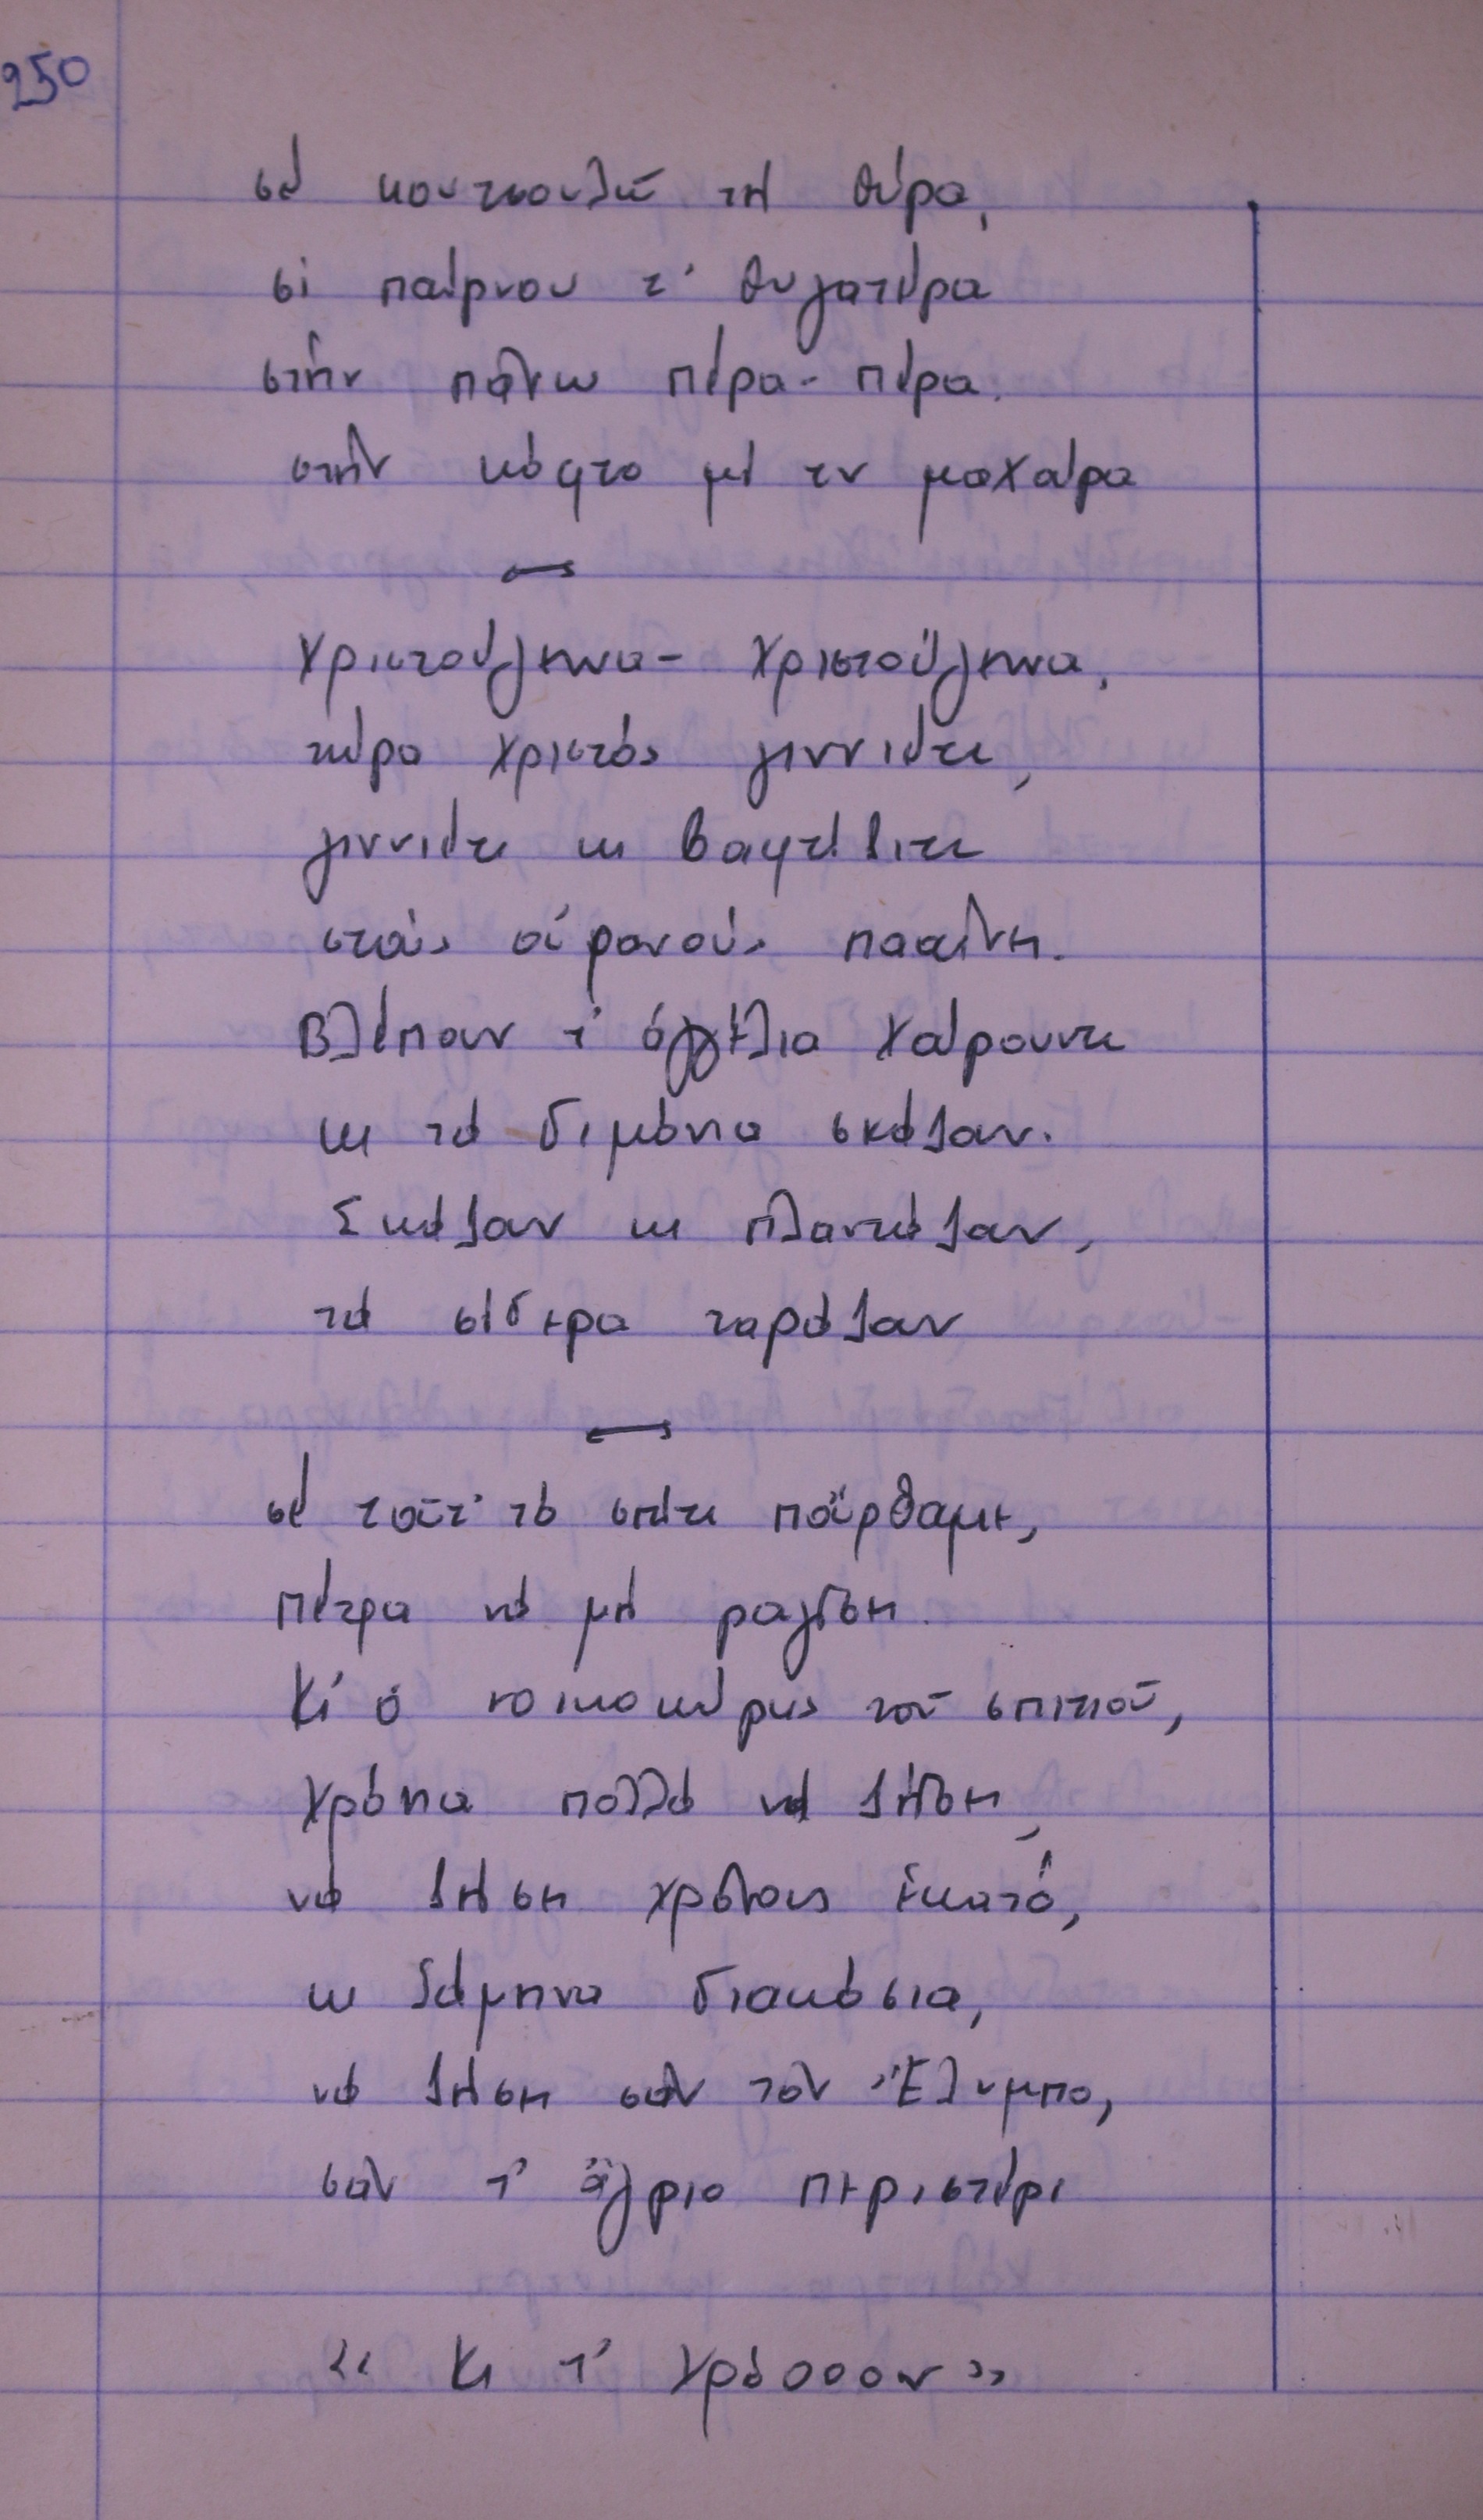 250
σέ κουτσουλώ τή θύρα,
σί παίρνου τ' θυγατέρα
στήν πάνω πέρα-πέρα.
στήν κόφτο μέ τν μαχαίρα
Χριστούγεννα- Χριστούγεννα,
τώρα Χριστός γιννιέτε,
γιννιέτε κι βαφτίζιτε
στούς οὐρανούς πααίνη.
Βλέπουν τ' ἀγγέλια χαίρουντε
κι τά διμόνια σκάζαν.
Σκάζαν κι πλαντάζαν,
τά σίδερα ταράζαν
σέ τοῦτ' τό σπίτι πὄρθαμε,
πέτρα νά μή ραγίση.
Κί ὁ νοικοκύρης τοῦ σπιτιοῦ,
χρόνια πολλά νά ζήση,
νά ζήση χρόνους ἑκατό,
κι ξάμηνα διακόσια,
νά ζήση σάν τόν Ἔλυμπο,
σάν τ' ἄγριο περιστέρι
«Κι τ' χρόοοον»